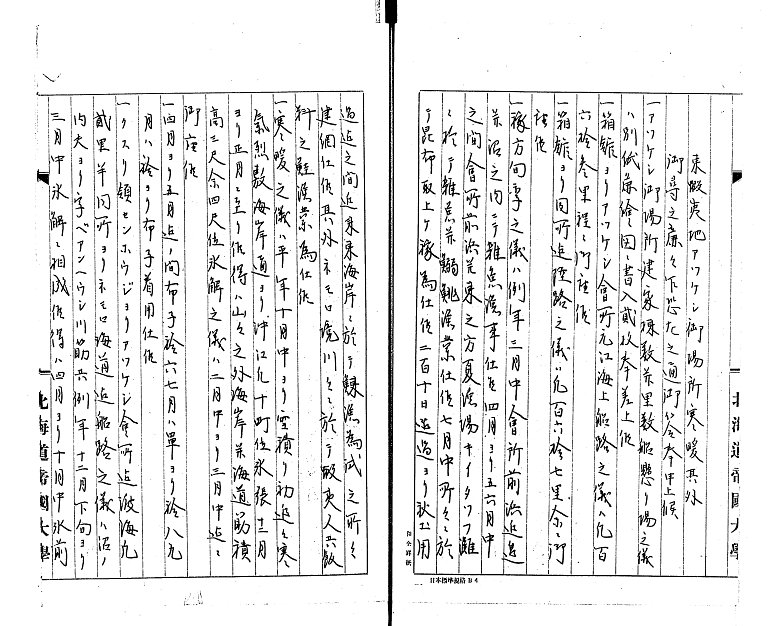 東蝦夷地アツケシ御場所寒暖其外
御尋之廉々下恐左之通御答奉申上候
一アツケシ御場所建家棟数并里数船懸り場之儀
ハ別紙麁絵図ニ書入貮枚奉差上候
一箱館ヨリアツケシ会所元江海上船路之儀ハ凡百
六拾参里程ニ御座候
一箱館ヨリ同所迄陸路之儀ハ凡百六拾七里余ニ御
座候
一稼方旬季之儀ハ例年三月中會所前浜近辺
并沼之内ニテ雑魚漁事仕候四月ヨリ五六月中
之間會所前浜并東之方夏漁場キイタツフ灘
ニ於テ雑魚并鰯鮡漁業仕候七月中所々ニ於
テ昆布取上ケ稼為仕候二百十日迄過ヨリ秋出用
過迄之間近来東海岸ニ於テ鰊漁為試之所々
建網仕候其外ネモロ境川々ニ於テ蝦夷人共飯
料之鮭漁業為仕候
一寒暖之儀ハ平年十月中ヨリ雪積リ初追々寒
氣烈敷海岸通ヨリ沖江凡十町位氷張十二月
ヨリ正月ニ至リ候得ハ山々之外海岸并海道筋積
高三尺余四尺位氷解之儀ハ二月中ヨリ三月中迄ニ
御座候
一四月ヨリ五月迄ノ間布子袷六七月ハ單ヨリ袷八九
月ハ袷ヨリ布子着用仕候
一クスリ領センホウジヨリアツケシ會所迄渡海九
貳里半同所ヨリネモロ海道迄船路之儀ハ沼ノ
内大ヨリ字ベアンヘウシ川筋共例年十二月下旬ヨリ
三月中氷解ニ相成候得ハ四月ヨリ十月中氷前
北海道帝國大學
北海道帝國大學
日本標準規格B4